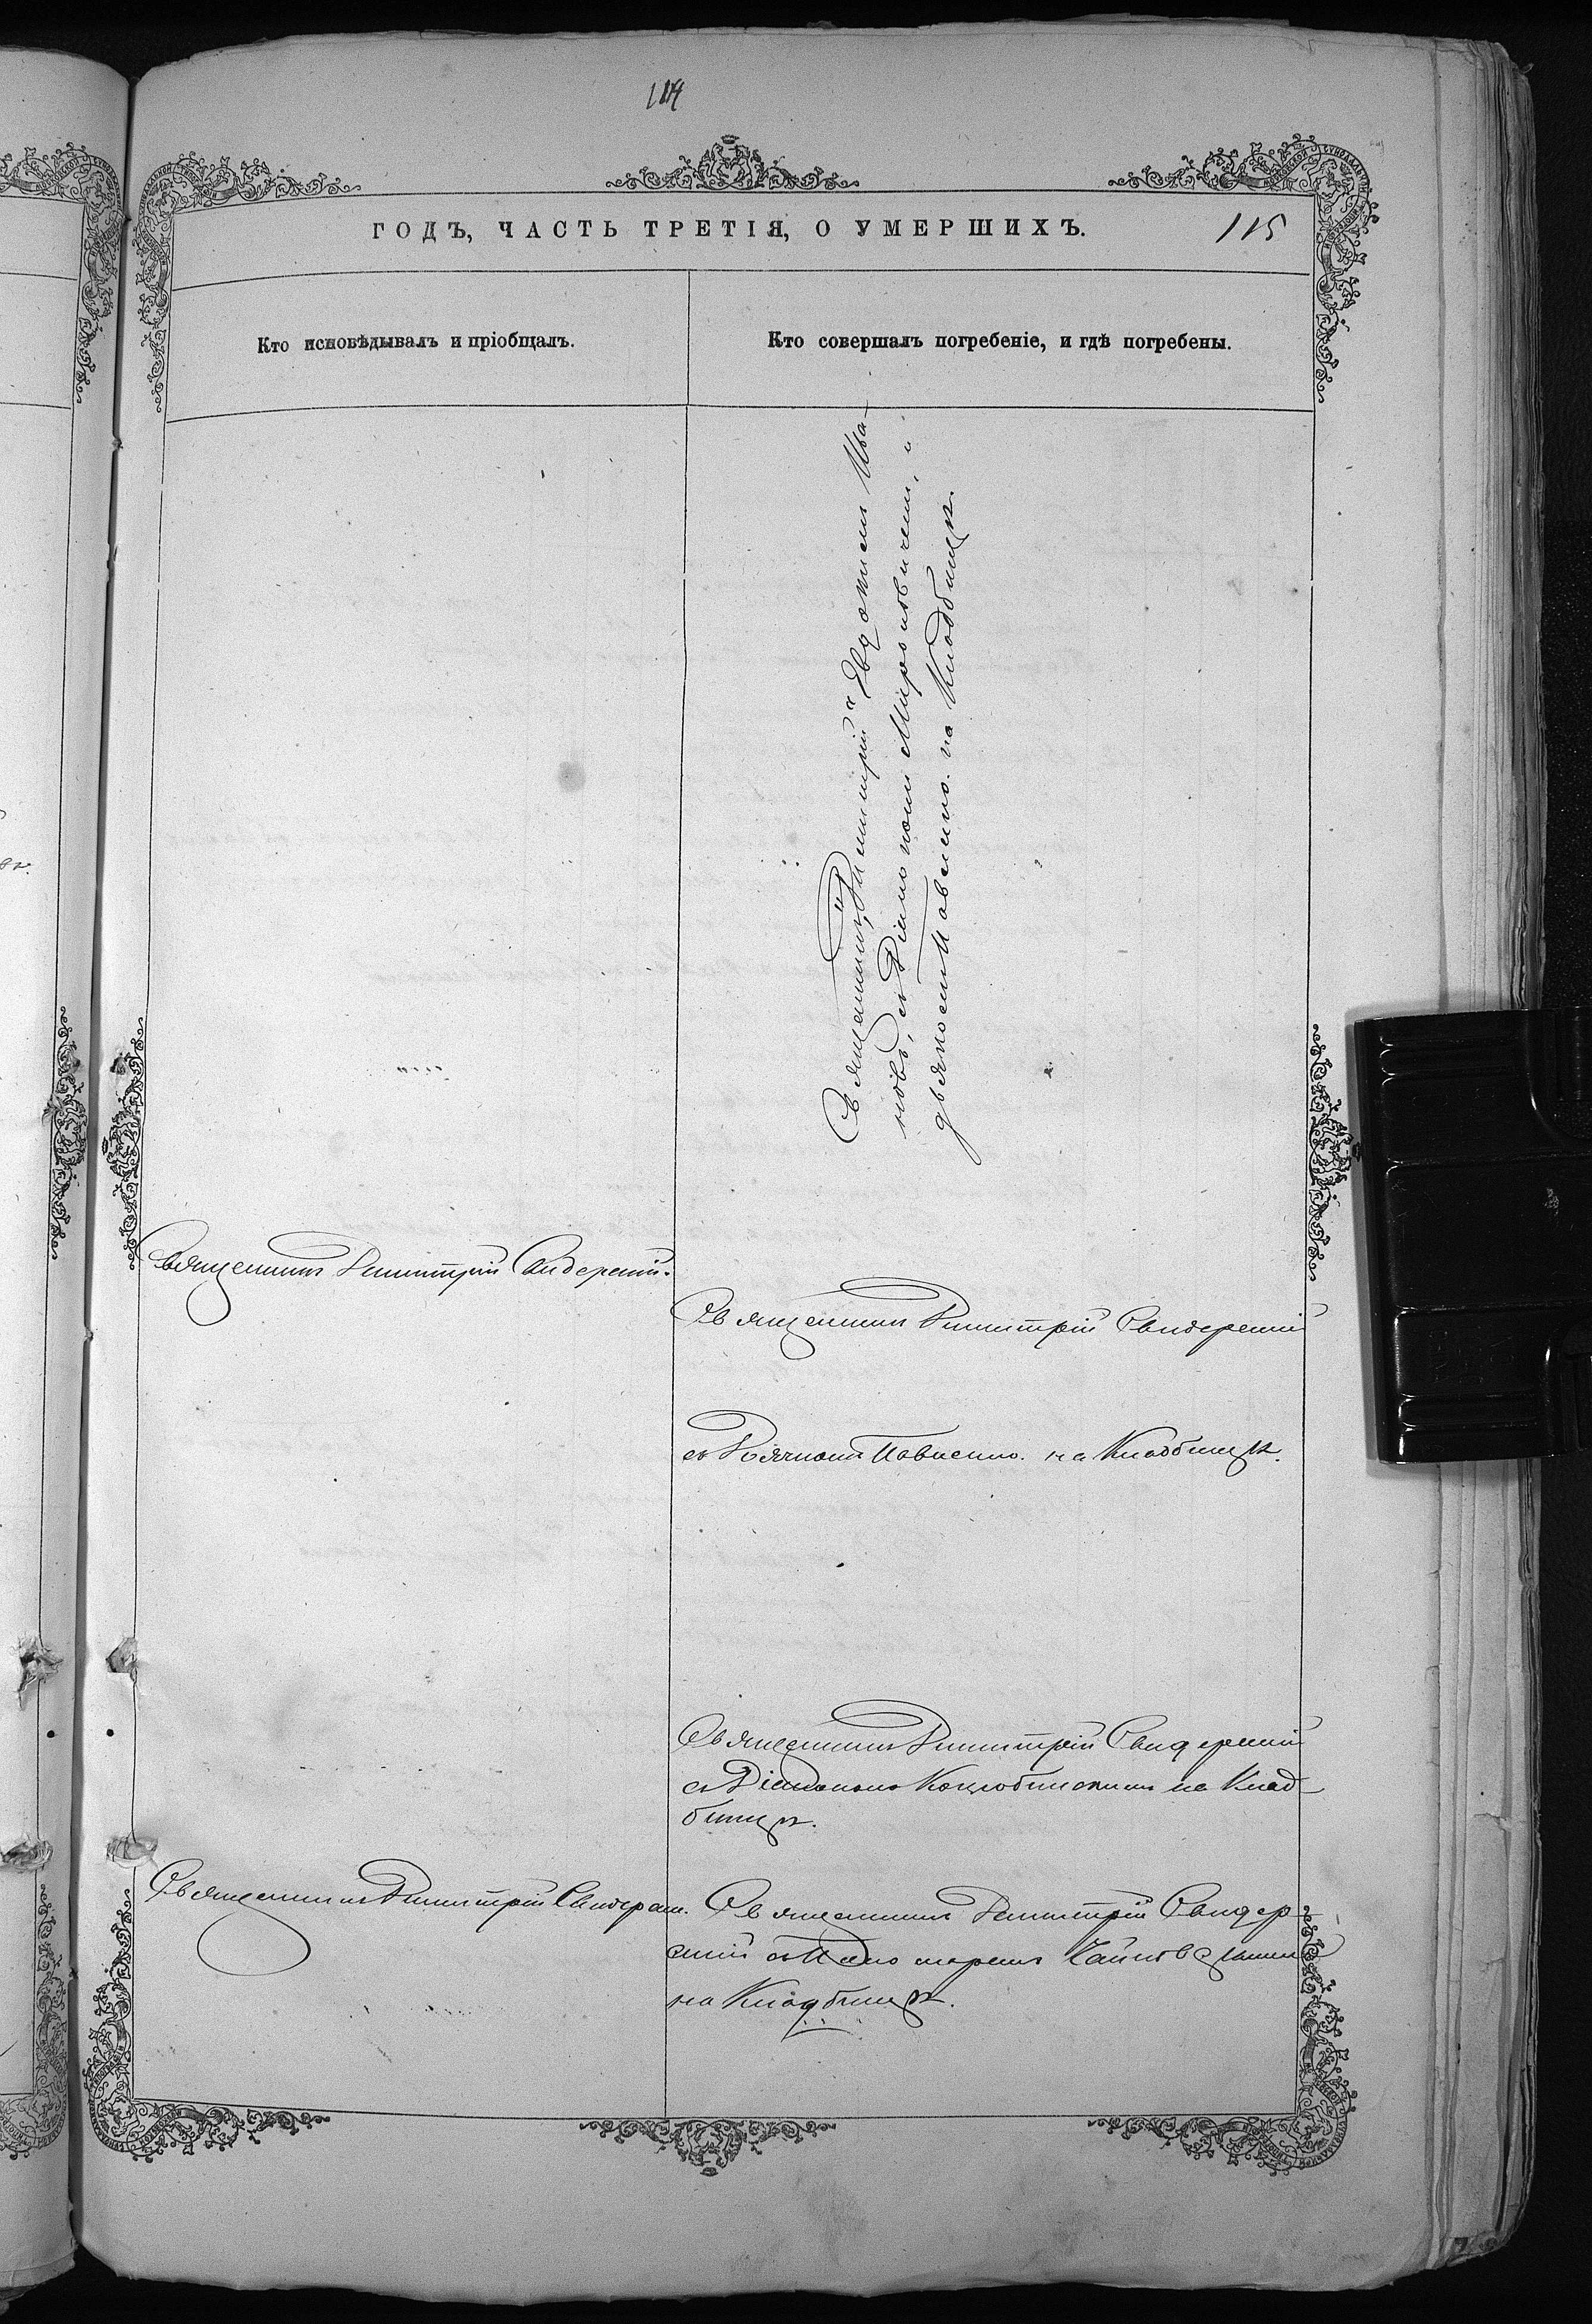 114
ГОДЪ, ЧАСТЬ ТРЕТІЯ, О УМЕРШИХЪ.
115
Кто исповѣдывалъ и пріобщалъ.
Кто совершалъ погребеніе, и гдѣ погребены.
Священникъ Димитрій и Ива-
новъ, съ Діакономъ Мироновичемъ, и
дьячкомъ на Кладбищѣ.
Священникъ Димитрій Свидерскій.
Священникъ Димитрій Свидерскій
съ на Кладбищѣ.
Священникъ Димитрій Свидерскій
съ Діакономъ на Клад-
бищѣ.
Священникъ Димитрій Свидерск.
Священникъ Димитрій Свидер-
скій съ
на Кладбищѣ.